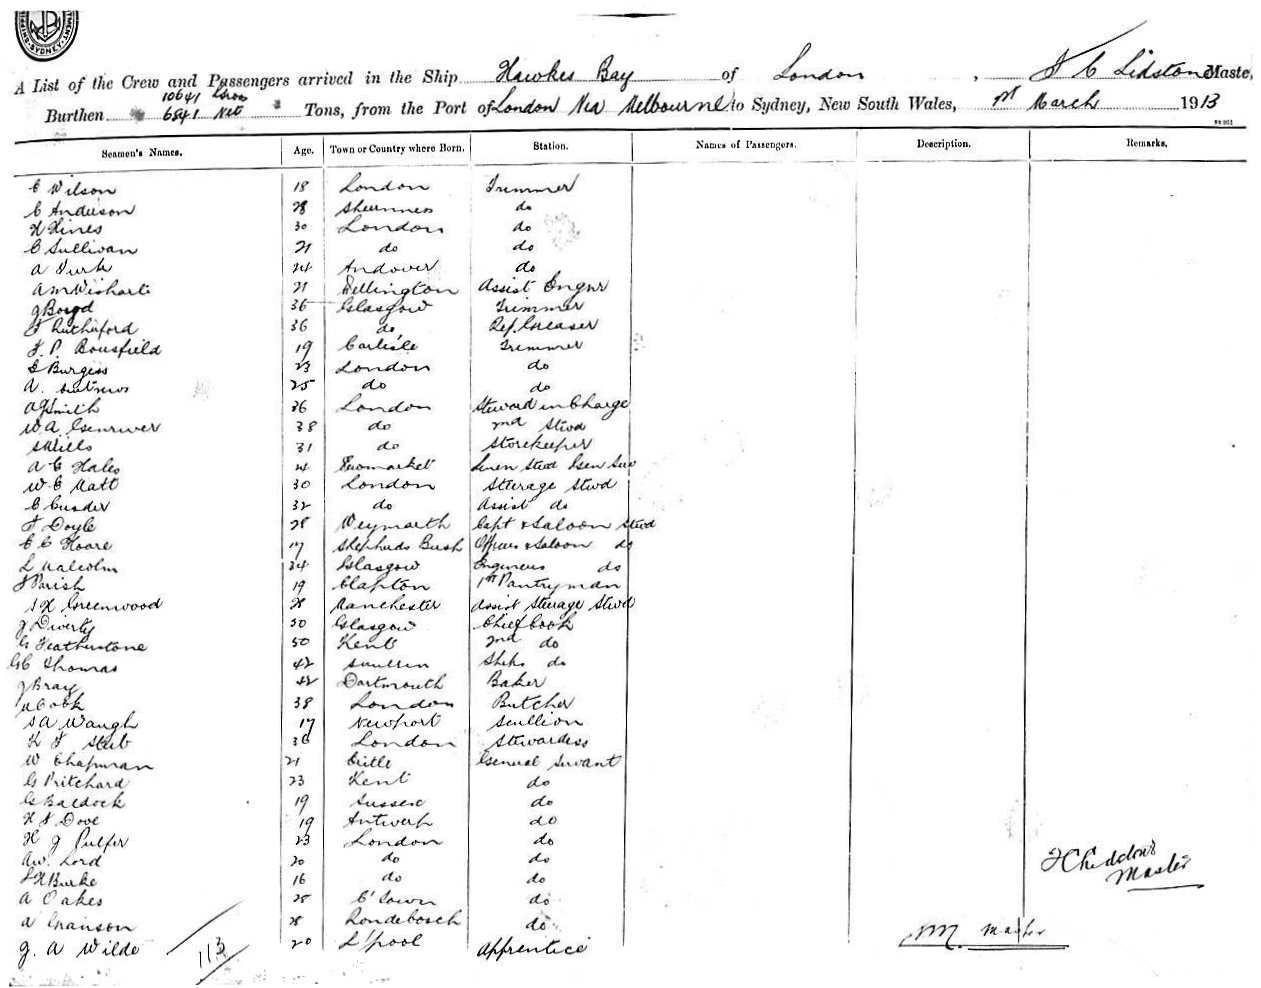 SHIPPING SYDNEY
A List of the Crew and Passengers arrived in the Ship Hawkes Bay of London, F C Lidstone Master,
Burthen 10641 Gross 6841 Net Tons, from the Port of London Via Melbourne to Sydney, New South Wales, March 1913
Seamen's Names. Age. Town or Country where Born. Station. Names of Passengers. Description. Remarks.
C Wilson 18 London Trimmer
C Anderson 28 Sheerness do
H Hines 30 London do
C Sullivan 21 do do
A Turk 24 Andover do
A M Wishart 21 Wellington Assist Engnr
J Boyd 36 Glasgow Trimmer
Rutherford 36 do Ref. Greaser
F. P. Bousfield 19 Carlisle Trimmer
Burgess 23 London do
A. 25 do do
A J Smith 36 London Steward in Charge
W A 38 do 2nd Stwd
S Wills 31 do Storekeeper
A C Hales Newmarket Linen Stwd Gen Serv
W C Matt 30 London Steerage Stwd
C 32 do Assist do
F Doyle 28 Weymouth Capt & Saloon Stwd
C C Hoare 17 Shepherds Bush Officers & Saloon do
L Malcolm 34 Glasgow Engineers do
F Parish 19 Clapton 1st Pantryman
S H Greenwood 28 Manchester Assist Steerage Stwd
J Diverty 50 Glasgow Chief Cook
G Featherstone 50 Kent 2nd do
G C Thomas 42 Ships do
J Bray 42 Dartmouth Baker
Cook 38 London Butcher
S A Waugh 17 Newport Scullion
36 London Stewardess
W Chapman 21 General Servant
G Pritchard 23 Kent do
G Baldock 19 Sussex do
H F Dove 19 Antwerp do
H J Pulfer 23 London do
A W. Lord 20 do do
Burke 16 do do
A Oakes 25 C' Town do
A 28 Rondebosch do
J. A Wilde 20 L'pool Apprentice
113
Master
Master